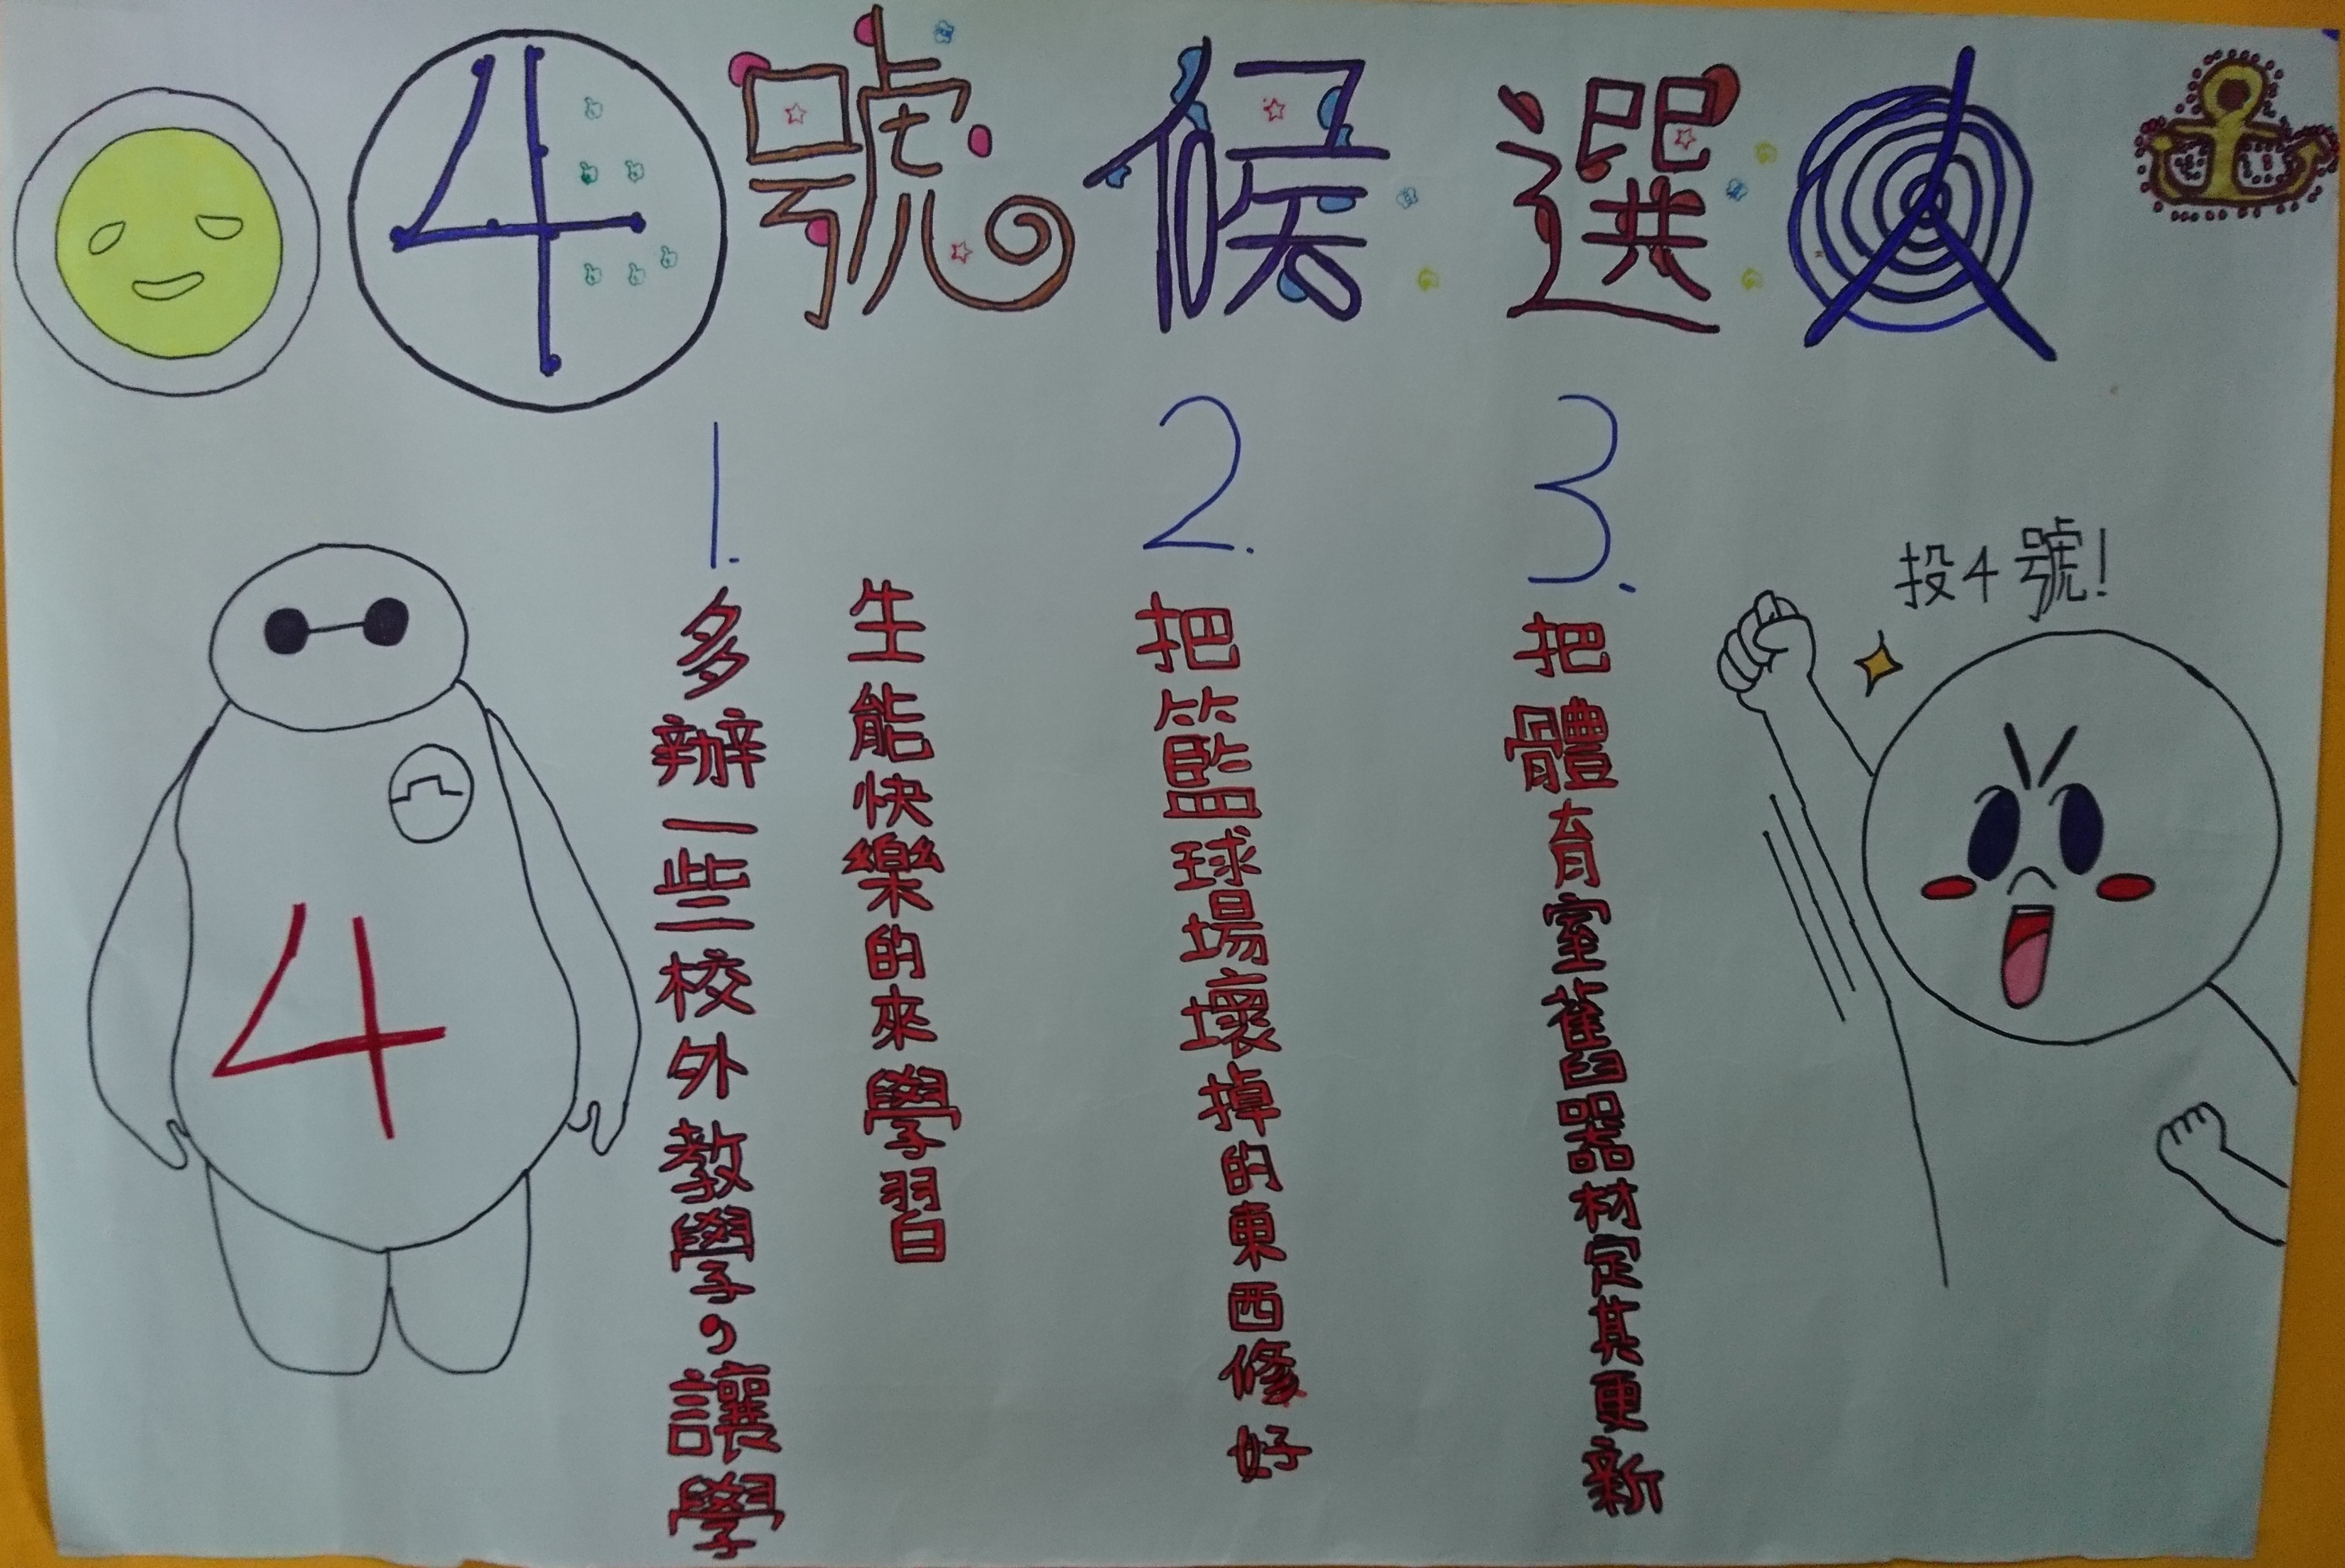 4號候選人
1.
多辦一些校外教學，讓學
生能快樂的來學習
2.
把籃球場壞掉的東西修好
3.
把體育室舊器材定其更新
投4號！
4